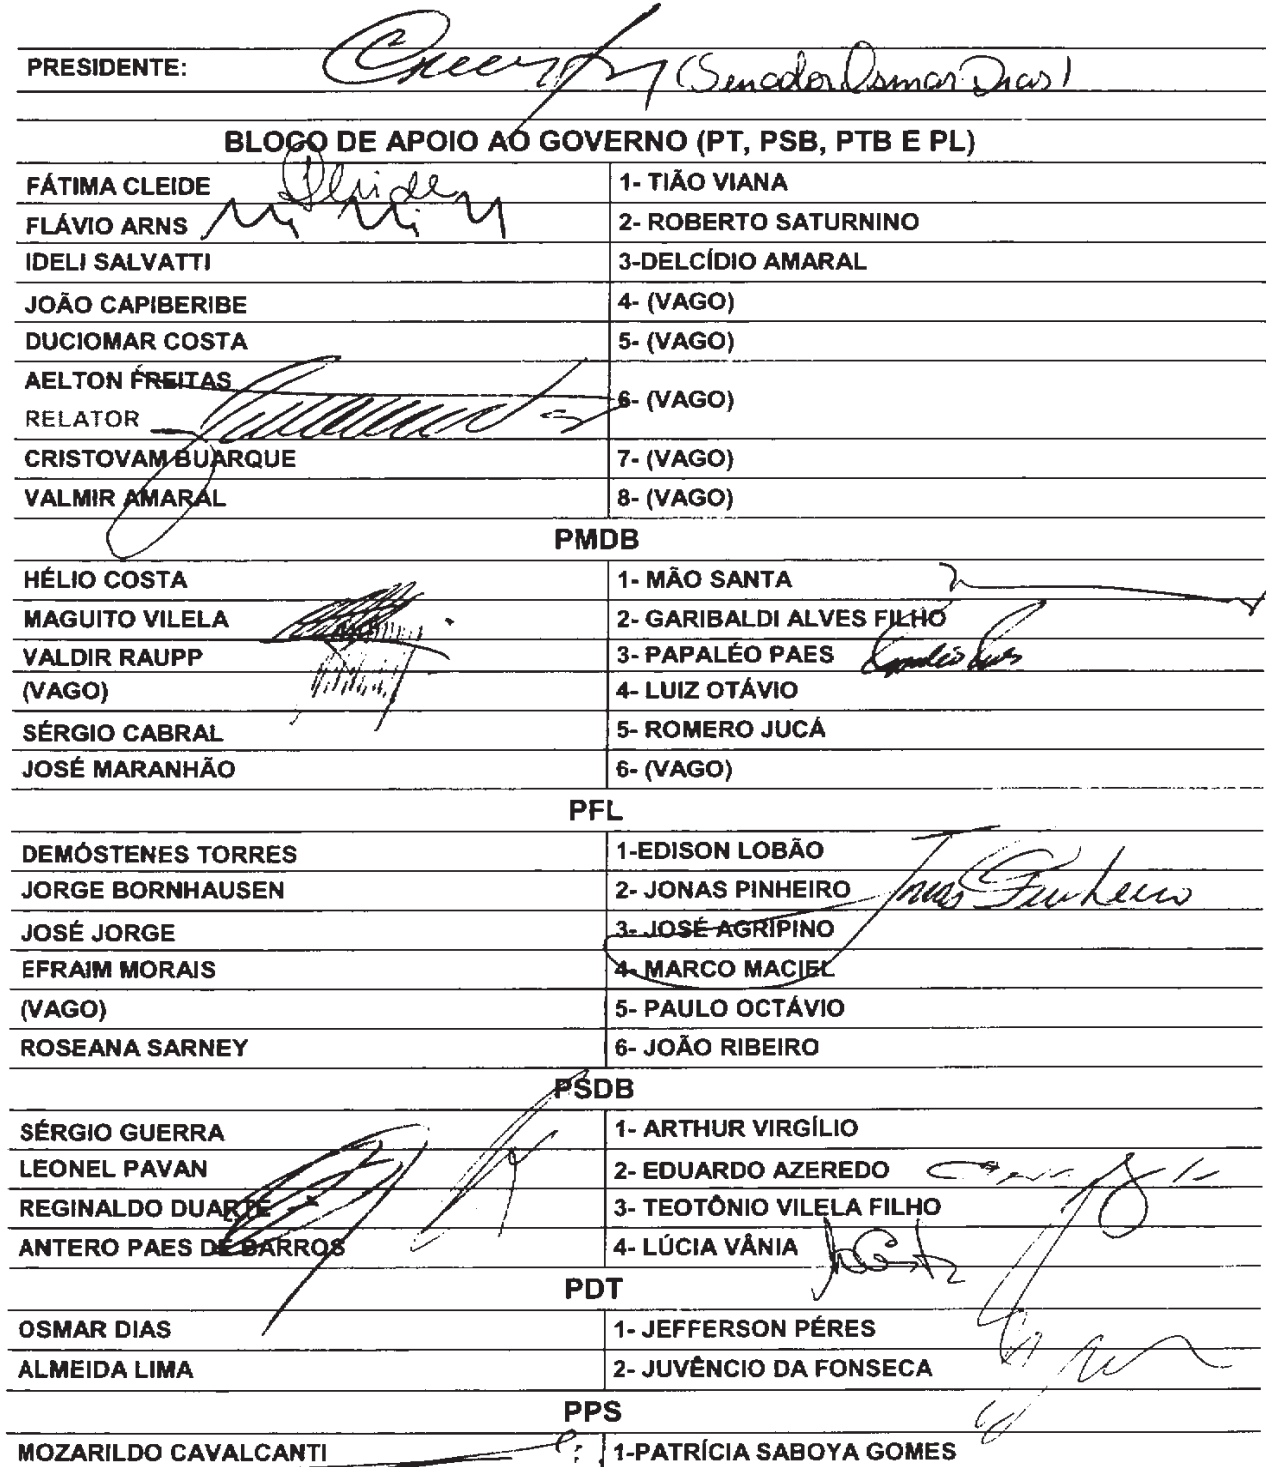 PRESIDENTE: (Senador Osmar Dias)
BLOCO DE APOIO AO GOVERNO (PT, PSB, PTB E PL)
FÁTIMA CLEIDE Cleide 1- TIÃO VIANA
FLÁVIO ARNS 2- ROBERTO SATURNINO
IDELI SALVATTI 3-DELCÍDIO AMARAL
JOÃO CAPIBERIBE 4- (VAGO)
DUCIOMAR COSTA 5- (VAGO)
AELTON FREITAS
RELATOR 6- (VAGO)
CRISTOVAM BUARQUE 7- (VAGO)
VALMIR AMARAL 8- (VAGO)
PMDB
HÉLIO COSTA 1- MÃO SANTA
MAGUITO VILELA 2- GARIBALDI ALVES FILHO
VALDIR RAUPP 3- PAPALÉO PAES
(VAGO) 4- LUIZ OTÁVIO
SÉRGIO CABRAL 5- ROMERO JUCÁ
JOSÉ MARANHÃO 6- (VAGO)
PFL
DEMÓSTENES TORRES 1-EDISON LOBÃO
JORGE BORNHAUSEN 2- JONAS PINHEIRO Jonas Pinheiro
JOSÉ JORGE 3- JOSÉ AGRIPINO
EFRAIM MORAIS 4- MARCO MACIEL
(VAGO) 5- PAULO OCTÁVIO
ROSEANA SARNEY 6- JOÃO RIBEIRO
PSDB
SÉRGIO GUERRA 1- ARTHUR VIRGÍLIO
LEONEL PAVAN 2- EDUARDO AZEREDO
REGINALDO DUARTE 3- TEOTÔNIO VILELA FILHO
ANTERO PAES DE BARROS 4- LÚCIA VÂNIA
PDT
OSMAR DIAS 1- JEFFERSON PÉRES
ALMEIDA LIMA 2- JUVÊNCIO DA FONSECA
PPS
MOZARILDO CAVALCANTI 1-PATRÍCIA SABOYA GOMES